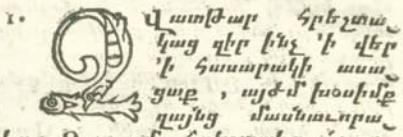 1. Զվատթար հրեշտա՟
կաց զիր ինչ ՚ի վեր
՚ի հասարակի ասա՟
ցաք , այժմ խօսիմք
զայնց մասնաւորա՟